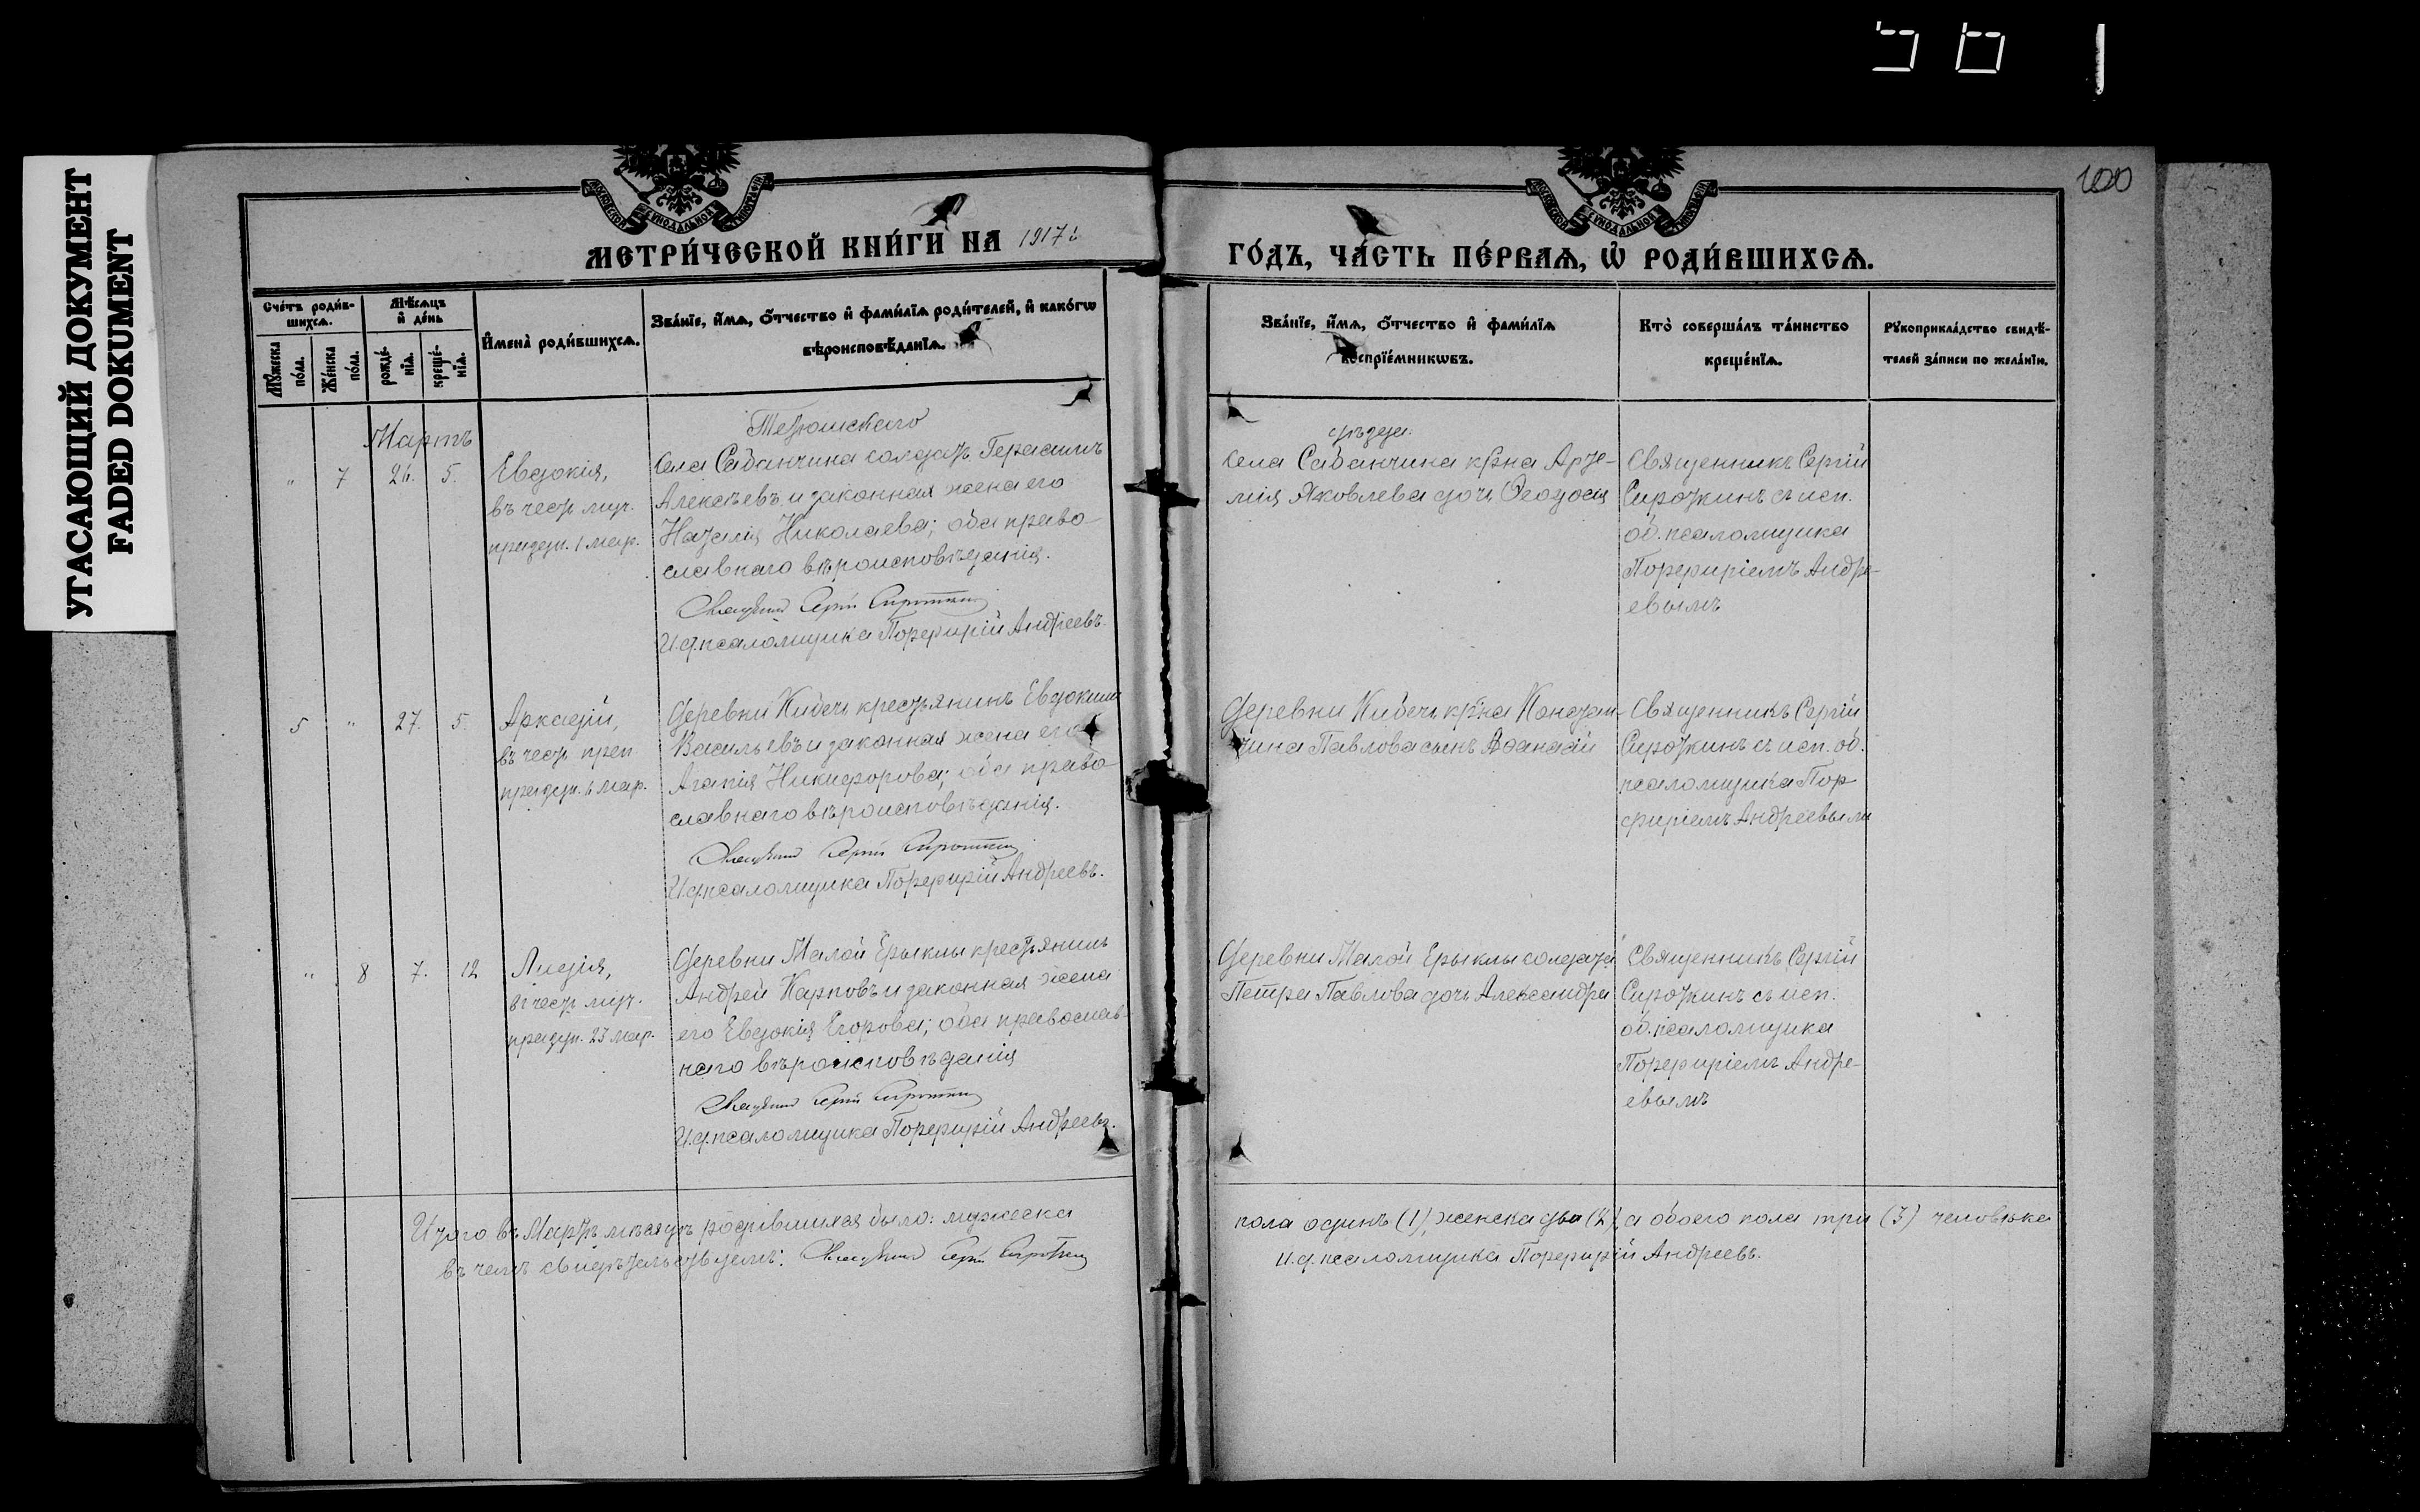 УГАСАЮЩИЙ ДОКУМЕНТ
FADED DOKUMENT
100
МЕТРИ́ЧЕСКОЙ КНИ́ГИ НА 1917 й
ГО́ДЪ, ЧА́СТЬ ПЕ́РВАѦ, Ѡ҆ РОДИ́ВШИХСѦ.
Сче́тъ роди́в-
шихсѧ.
Мꙋ́жеска по́ла.
Же́нска по́ла.
Мѣ́сѧцъ и҆ де́нь
рожде́-
нїѧ.
креще́-
нїѧ.
И҆мена̀ роди́вшихсѧ.
Зва́нїе, и҆́мѧ, ѻ҆́тчество и҆ фами́лїѧ роди́телей, и҆ како́гѡ
вѣроисповѣ́данїѧ.
Зва́нїе, и҆́мѧ, ѻ҆́тчество и҆ фами́лїѧ
воспрїе́мникѡвъ.
Кто̀ соверша́лъ та́инство
креще́нїѧ.
Рꙋкоприкла́дство свидѣ́-
телей за́писи по жела́нїю.
Мартъ
Тетюшскаго
уѣзда.
" 7 26. 5.
Евдокія,
въ честь муч.
празрн. 1 мар.
Села Сабанчина солдатъ Герасимъ
Алексѣевъ и законная жена его
Наталія Николаева; оба право-
славнаго вѣроисповѣданія.
Священникъ Сергій Сироткин
И.д. псаломщика Порфирій Андреевъ.
Села Сабанчина кр-на Арте-
мія Яковлева дочь Ѳеодосія
Священникъ Сергій
Сироткинъ съ исп.
об. псаломщика
Порфиріемъ Андре-
евымъ
5 " 27. 5.
Аркадій,
въ честь преп.
праздн. 6 мар.
Деревни Кибечь крестьянинъ Евдокимъ
Васильевъ и законная жена его
Агапія Никифорова; оба право
славнаго вѣроисповѣданія.
Священникъ Сергій Сироткин
И.д. псаломщика Порфирій Андреевъ.
Деревни Кибечь кр-на Констан-
тина Павлова сынъ Аѳанасій
Священникъ Сергій
Сироткинъ съ исп. об.
псаломщика Пор
фиріемъ Андреевымъ
" 8 7. 12
Лидія,
въ честь муч.
праздн. 23 мар.
Деревни Малой Ерыклы крестьянинъ
Андрей Карповъ и законная жена
его Евдокія Егорова; оба православ-
наго вѣроисповѣданія
Священникъ Сергій Сироткин
И.д. псаломщика Порфирій Андреевъ.
Деревни Малой Ерыклы солдата
Петра Павлова дочь Александра
Священникъ Сергій
Сироткинъ съ исп.
об. псаломщика
Порфиріемъ Андре-
евымъ
Итого въ Мартѣ мѣсяцѣ родившихся было: мужеска
пола одинъ (1), женска два (2), а обоего пола три (3) человѣка
въ чемъ свидѣтельствуемъ: Священникъ Сергій Сироткин
И.д. псаломщика Порфирій Андреевъ.